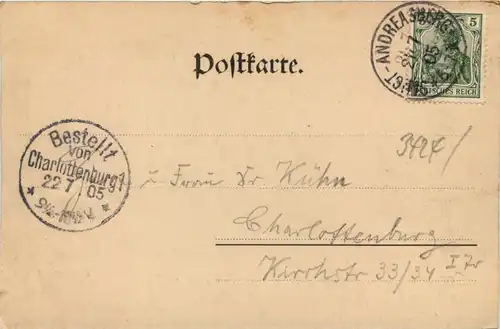 ST-ANDREASBERG
21 7 05
5
DEUTSCHES REICH
Postkarte.
3424/
Bestellt
von
Charlottenburg 1
22 7 05
u Frau Dr Kühn
Charlottenburg
Kirchstr 33/34 I Tr